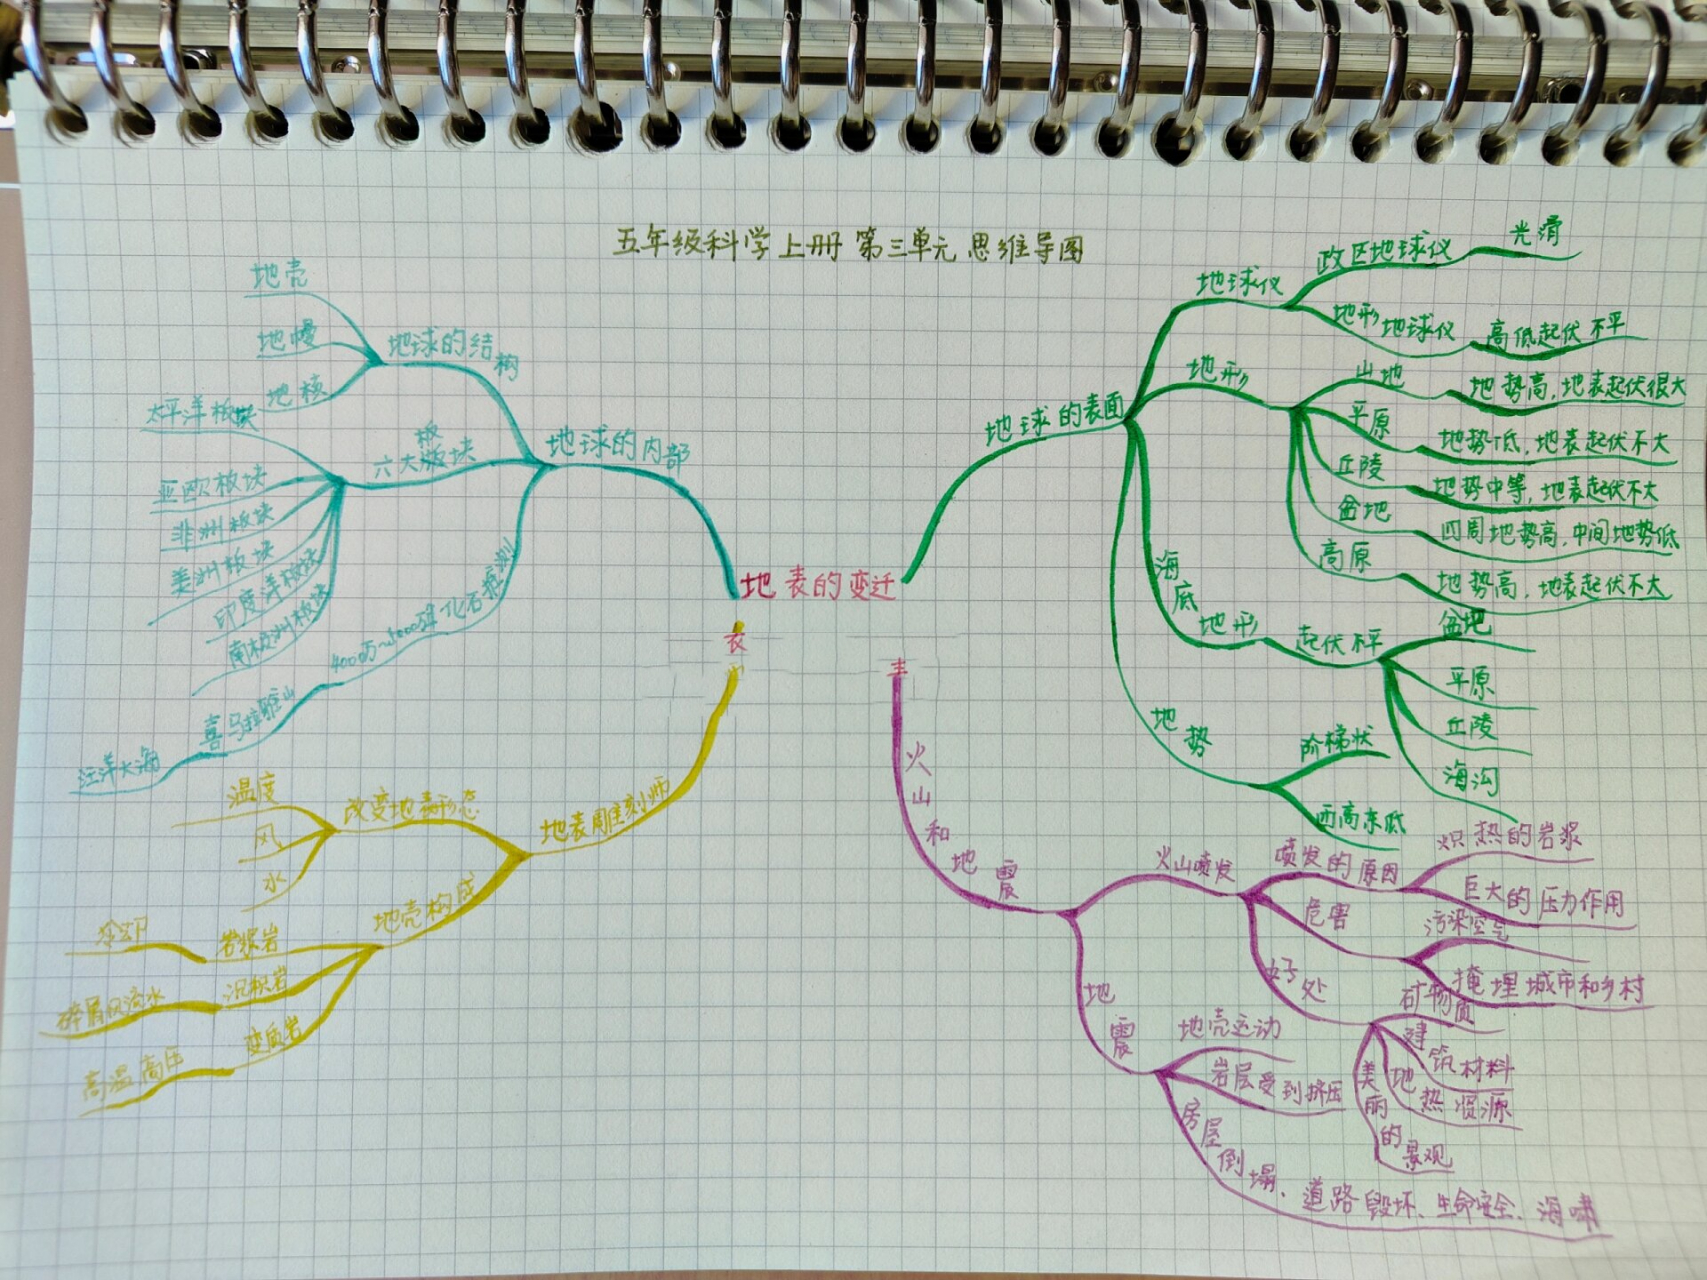 五年级科学上册 第三单元思维导图
地表的变迁
地球的表面
地球仪
政区地球仪
光滑
地形地球仪
高低起伏不平
地形
山地
地势高,地表起伏很大
平原
地势低,地表起伏不大
丘陵
地势中等,地表起伏不大
盆地
四周地势高,中间地势低
高原
地势高,地表起伏不大
海底地形
起伏不平
盆地
平原
丘陵
海沟
地势
阶梯状
西高东低
火山和地震
火山喷发
喷发的原因
炽热的岩浆
巨大的压力作用
危害
污染空气
掩埋城市和乡村
好处
矿物质
建筑材料
地热资源
美丽的景观
地震
地壳运动
岩层受到挤压
房屋倒塌、道路毁坏、生命安全、海啸
地球的内部
地球的结构
地壳
地幔
地核
六大板块
太平洋板块
亚欧板块
非洲板块
美洲板块
印度洋板块
南极洲板块
化石推测
喜马拉雅山
汪洋大海
地表雕刻师
改变地表形态
温度
风
水
地壳构成
岩浆岩
冷却
沉积岩
碎屑风流水
变质岩
高温高压